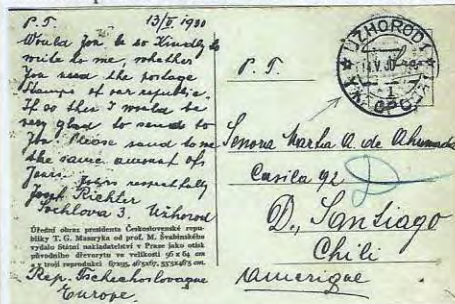 P. T. 13/V. 1930
Would you be so kindly to
write to me, whether
you need the postage
stamps of our republic.
If so then I would be
very glad to send to
you. Please send to me
the same amount of
yours. Yours respectfully
Josef Richler
Sochlova 3. Užhorod
Úřední obraz presidenta Československé repu-
bliky T. G. Masaryka od prof. M. Švabinského
vydalo Státní nakladatelství v Praze jako otisk
původního dřevorytu ve velikosti 96 x 64 cm
a v trojí reprodukci
Rep. Tschechoslovaque
Europe.
UŽHOROD 1
P. T.
Senora Martha A. de Ahumada
Casila 92 D.
D., Santiago
Chili
Amerique